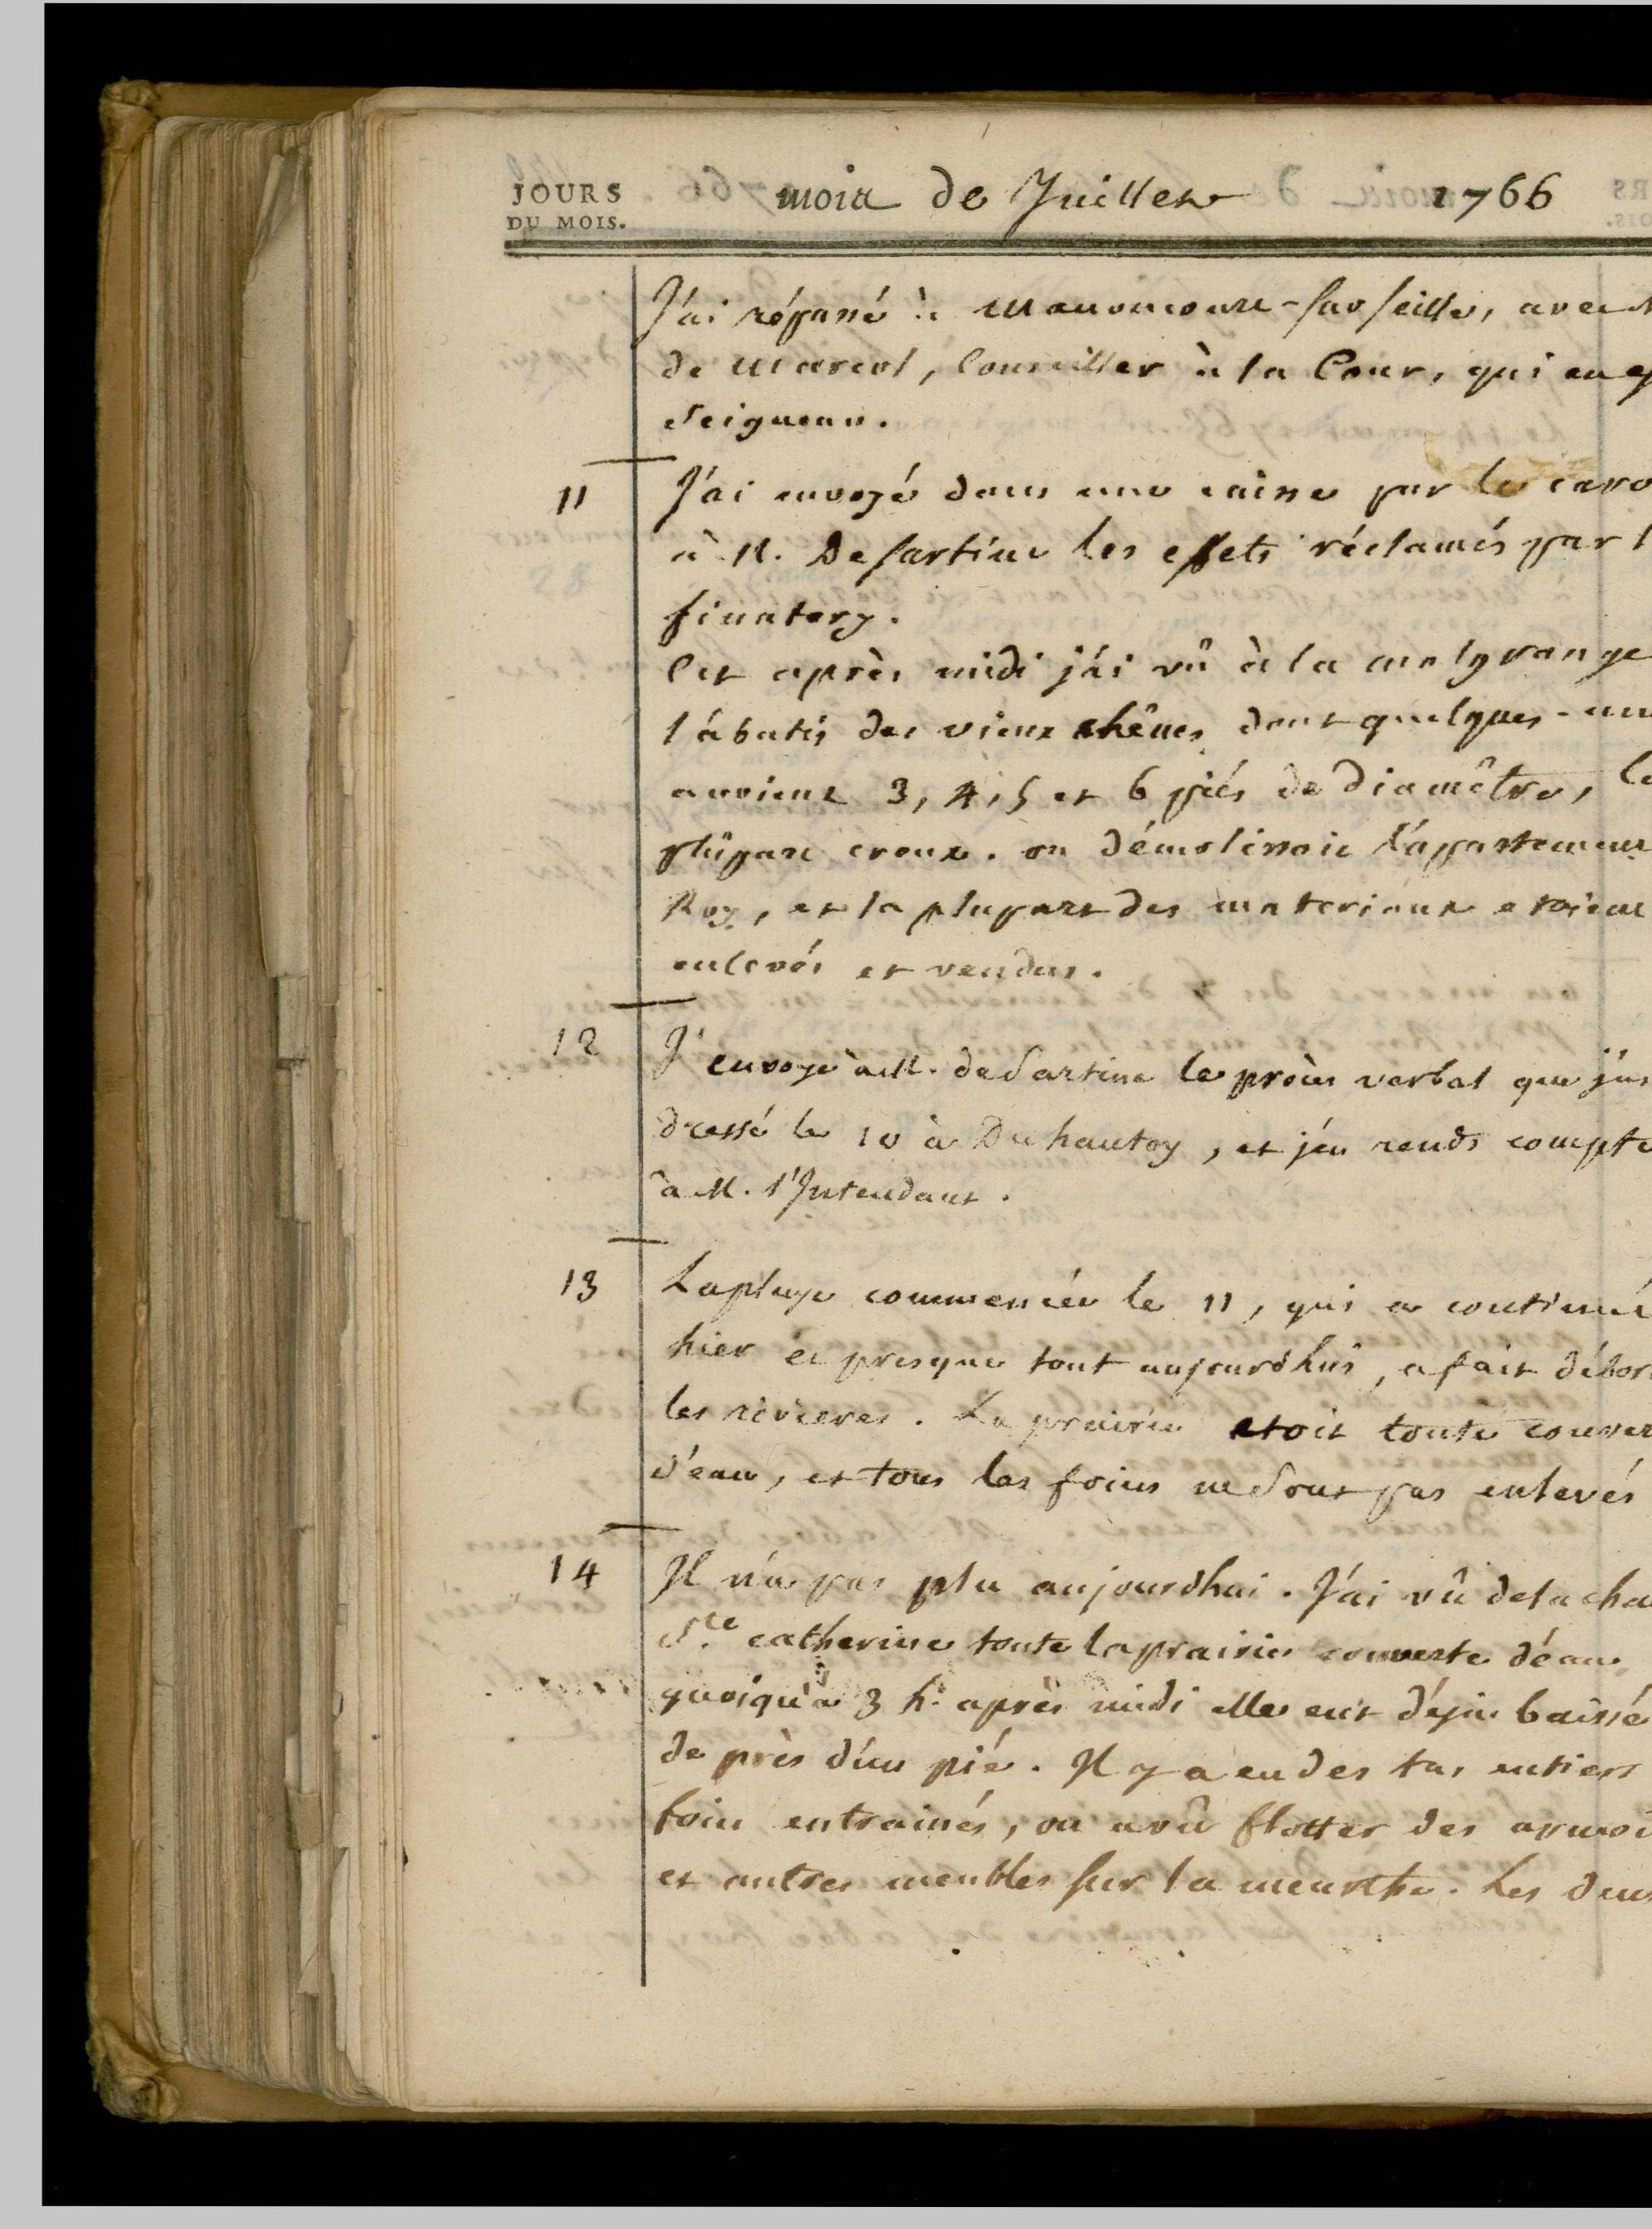 JOURS
DU MOIS.
mois de Juillet 1766
J'ai répassé à Manoncourt-sur seille, avec M
de Marcol, Conseiller à la Cour, qui en e
Seigneur.
11 J'ai envoyé dans une caisse par le caro
à M. De sartine les effets réclamés par
finatery.
Cet après midi j'ai vû à la malgrange
l'abatis des vieux chênes dont quelques-un
avoient 3, 4, 5 et 6 piés de diamêtre, la
plûpart creux. on démolissoit l'appartement
Roy, et la plupart des materiaux etoient
enlevés et vendus.
12 J'envoye à M. de Sartine le procès verbal que j'ai
dressé le 10 à Duhautoy, et j'en rends compte
à M. l'Intendant.
13 La pluye commencée le 11, qui a continué
hier et presque tout aujourdhui, a fait débor
les rivieres. La prairie etoit toute couver
d'eau, et tous les foins ne sont pas enlevés
14 Il n'a pas plu aujourdhui. J'ai vû de la cha
Ste catherine toute la prairie couverte d'eau,
quoiqu'à 3 h. après midi elle eut déja baissé
de près d'un pié. Il y a eu des tas entiers
foin entrainés, on a vû flotter des armoi
et autres meubles sur la meurthe. Les deux